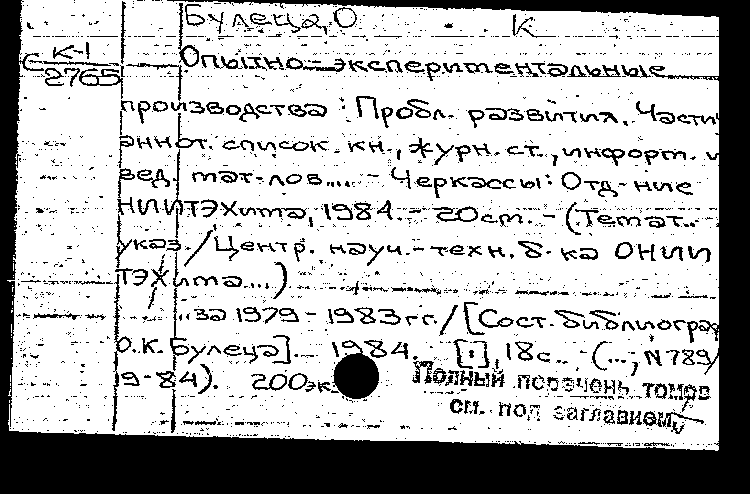 Булеца, О К
С К-1/2765
Опытно-экспериментальные
производства : Пробл. развития. Части
аннот. список. кн., журн. ст., информ. и
вед. мат-лов... - Черкассы: Отд-ние
НИИТЭХима, 1984. - 20 см. - (Темат.
указ. / Центр. науч.-техн. б-ка ОНИИ
ТЭХима...)
...за 1979 - 1983 гг. / [Сост. библиограф
О.К. Булеца]. 1984. [1], 18 с.. (...; N 789/
19-84). 200 эк
Полный перечень томов
см. под заглавием